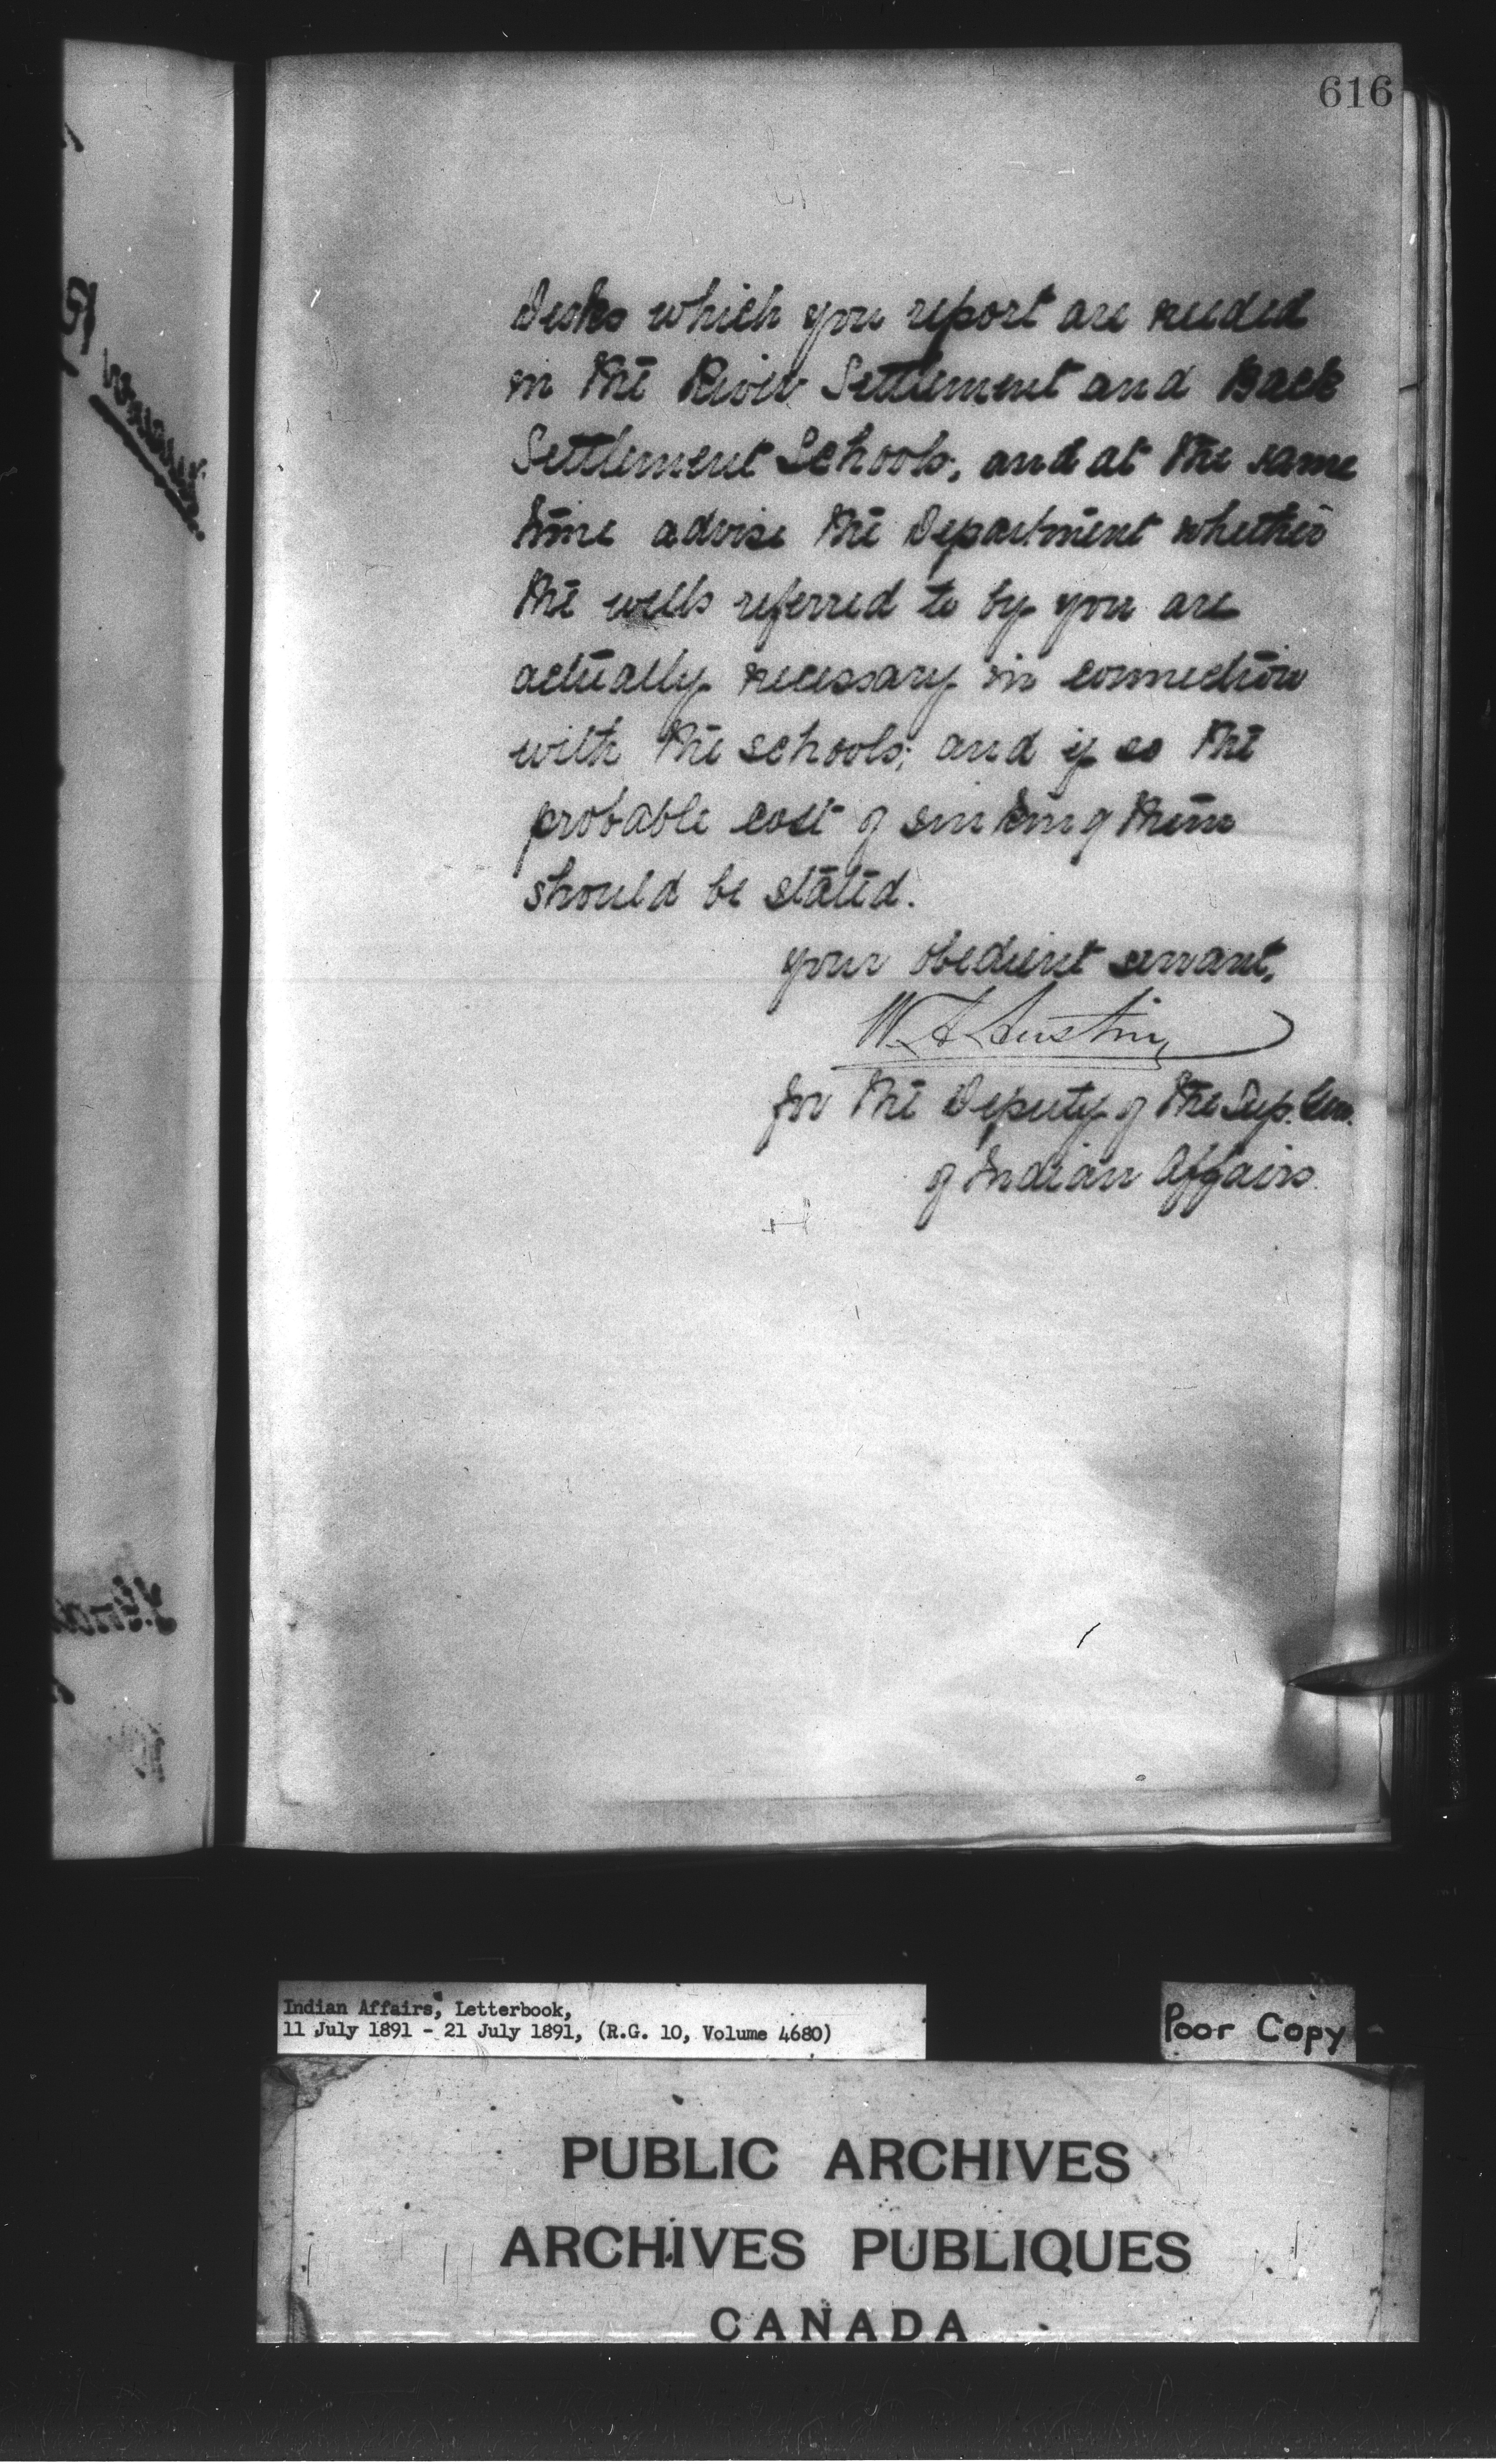 616
Desks which you report are needed
in the River Settlement and Back
Settlement Schools, and at the same
time advise the Department whether
the wells referred to by you are
actually necessary in connection
with the schools; and if so the
probable cost of sinking them
should be stated.
your obedient servant,
W. A. Austin,
for the Deputy of the Sup. Gen.
of Indian Affairs
Indian Affairs, Letterbook,
11 July 1891 - 21 July 1891, (R.G. 10, Volume 4680)
Poor Copy
PUBLIC ARCHIVES
ARCHIVES PUBLIQUES
CANADA